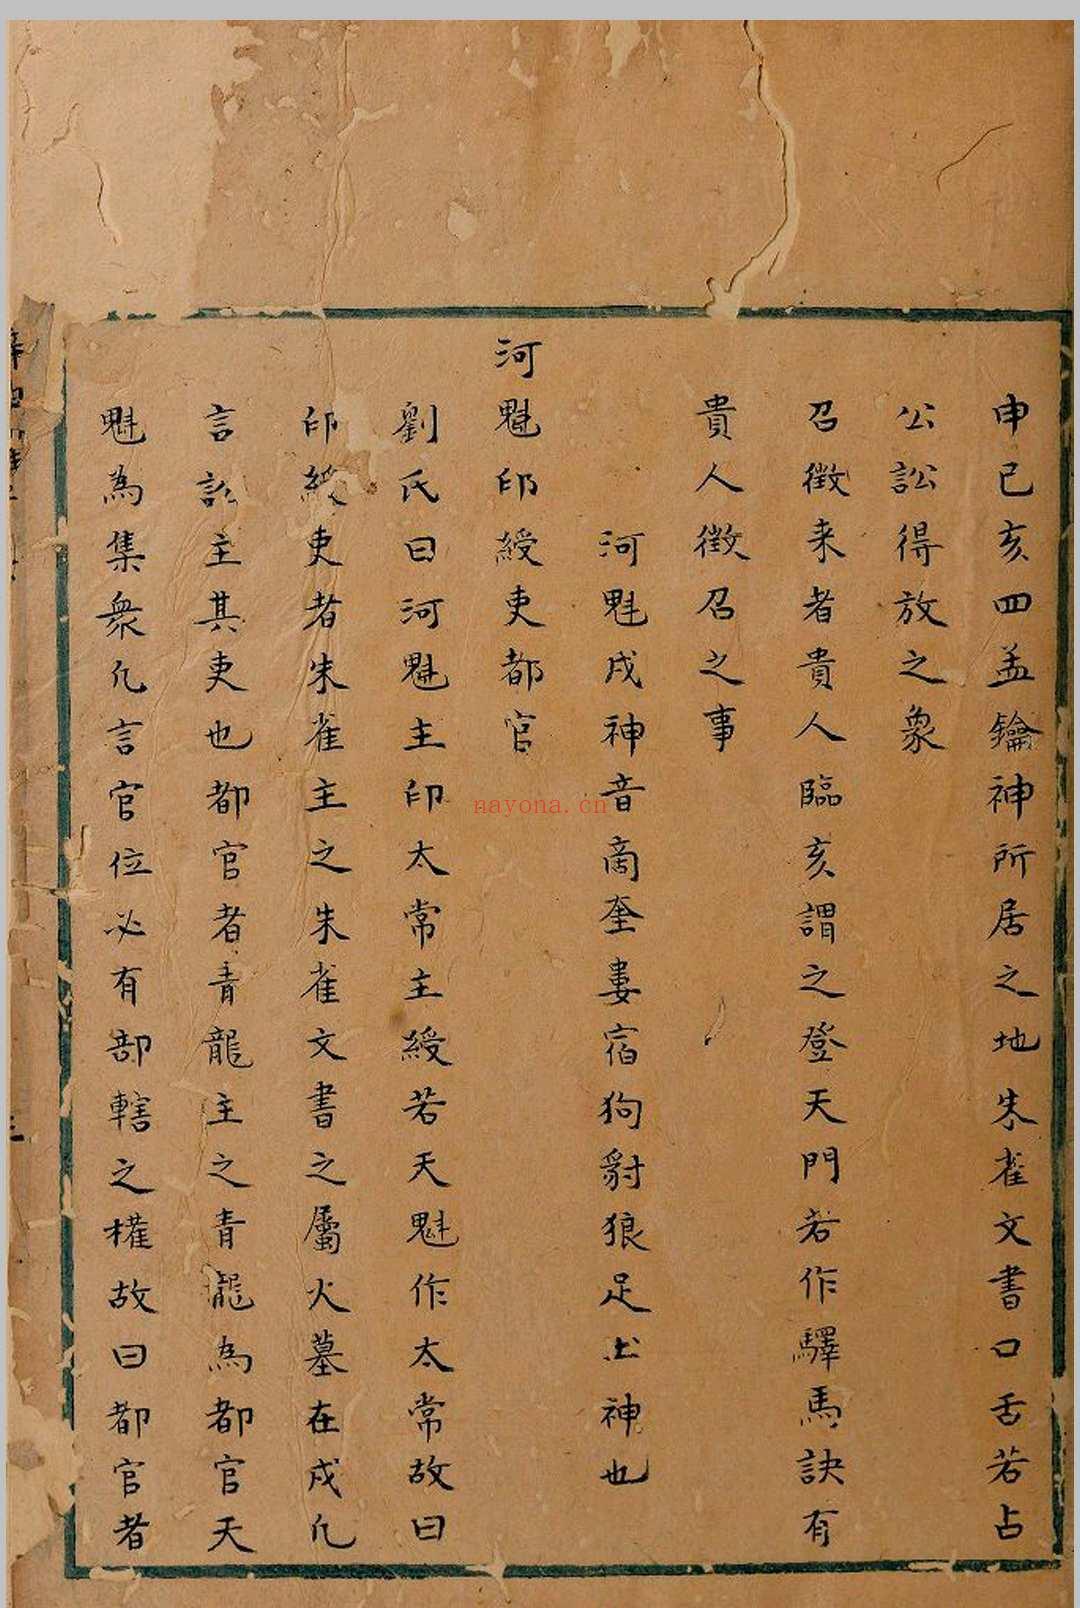 申巳亥四孟鑰神所居之地朱雀文書口舌若占
公訟得放之象
召徴来者貴人臨亥謂之登天門若作驛馬訣有
貴人徴召之事
河魁戌神音商奎婁宿狗豺狼足土神也
河魁印綬吏都官
劉氏曰河魁主印太常主綬若天魁作太常故曰
印綬吏者朱雀主之朱雀文書之屬火墓在戌凢
言訟主其吏也都官者青龍主之青龍為都官天
魁為集衆凢言官位必有部轄之權故曰都官者
nayona.cn